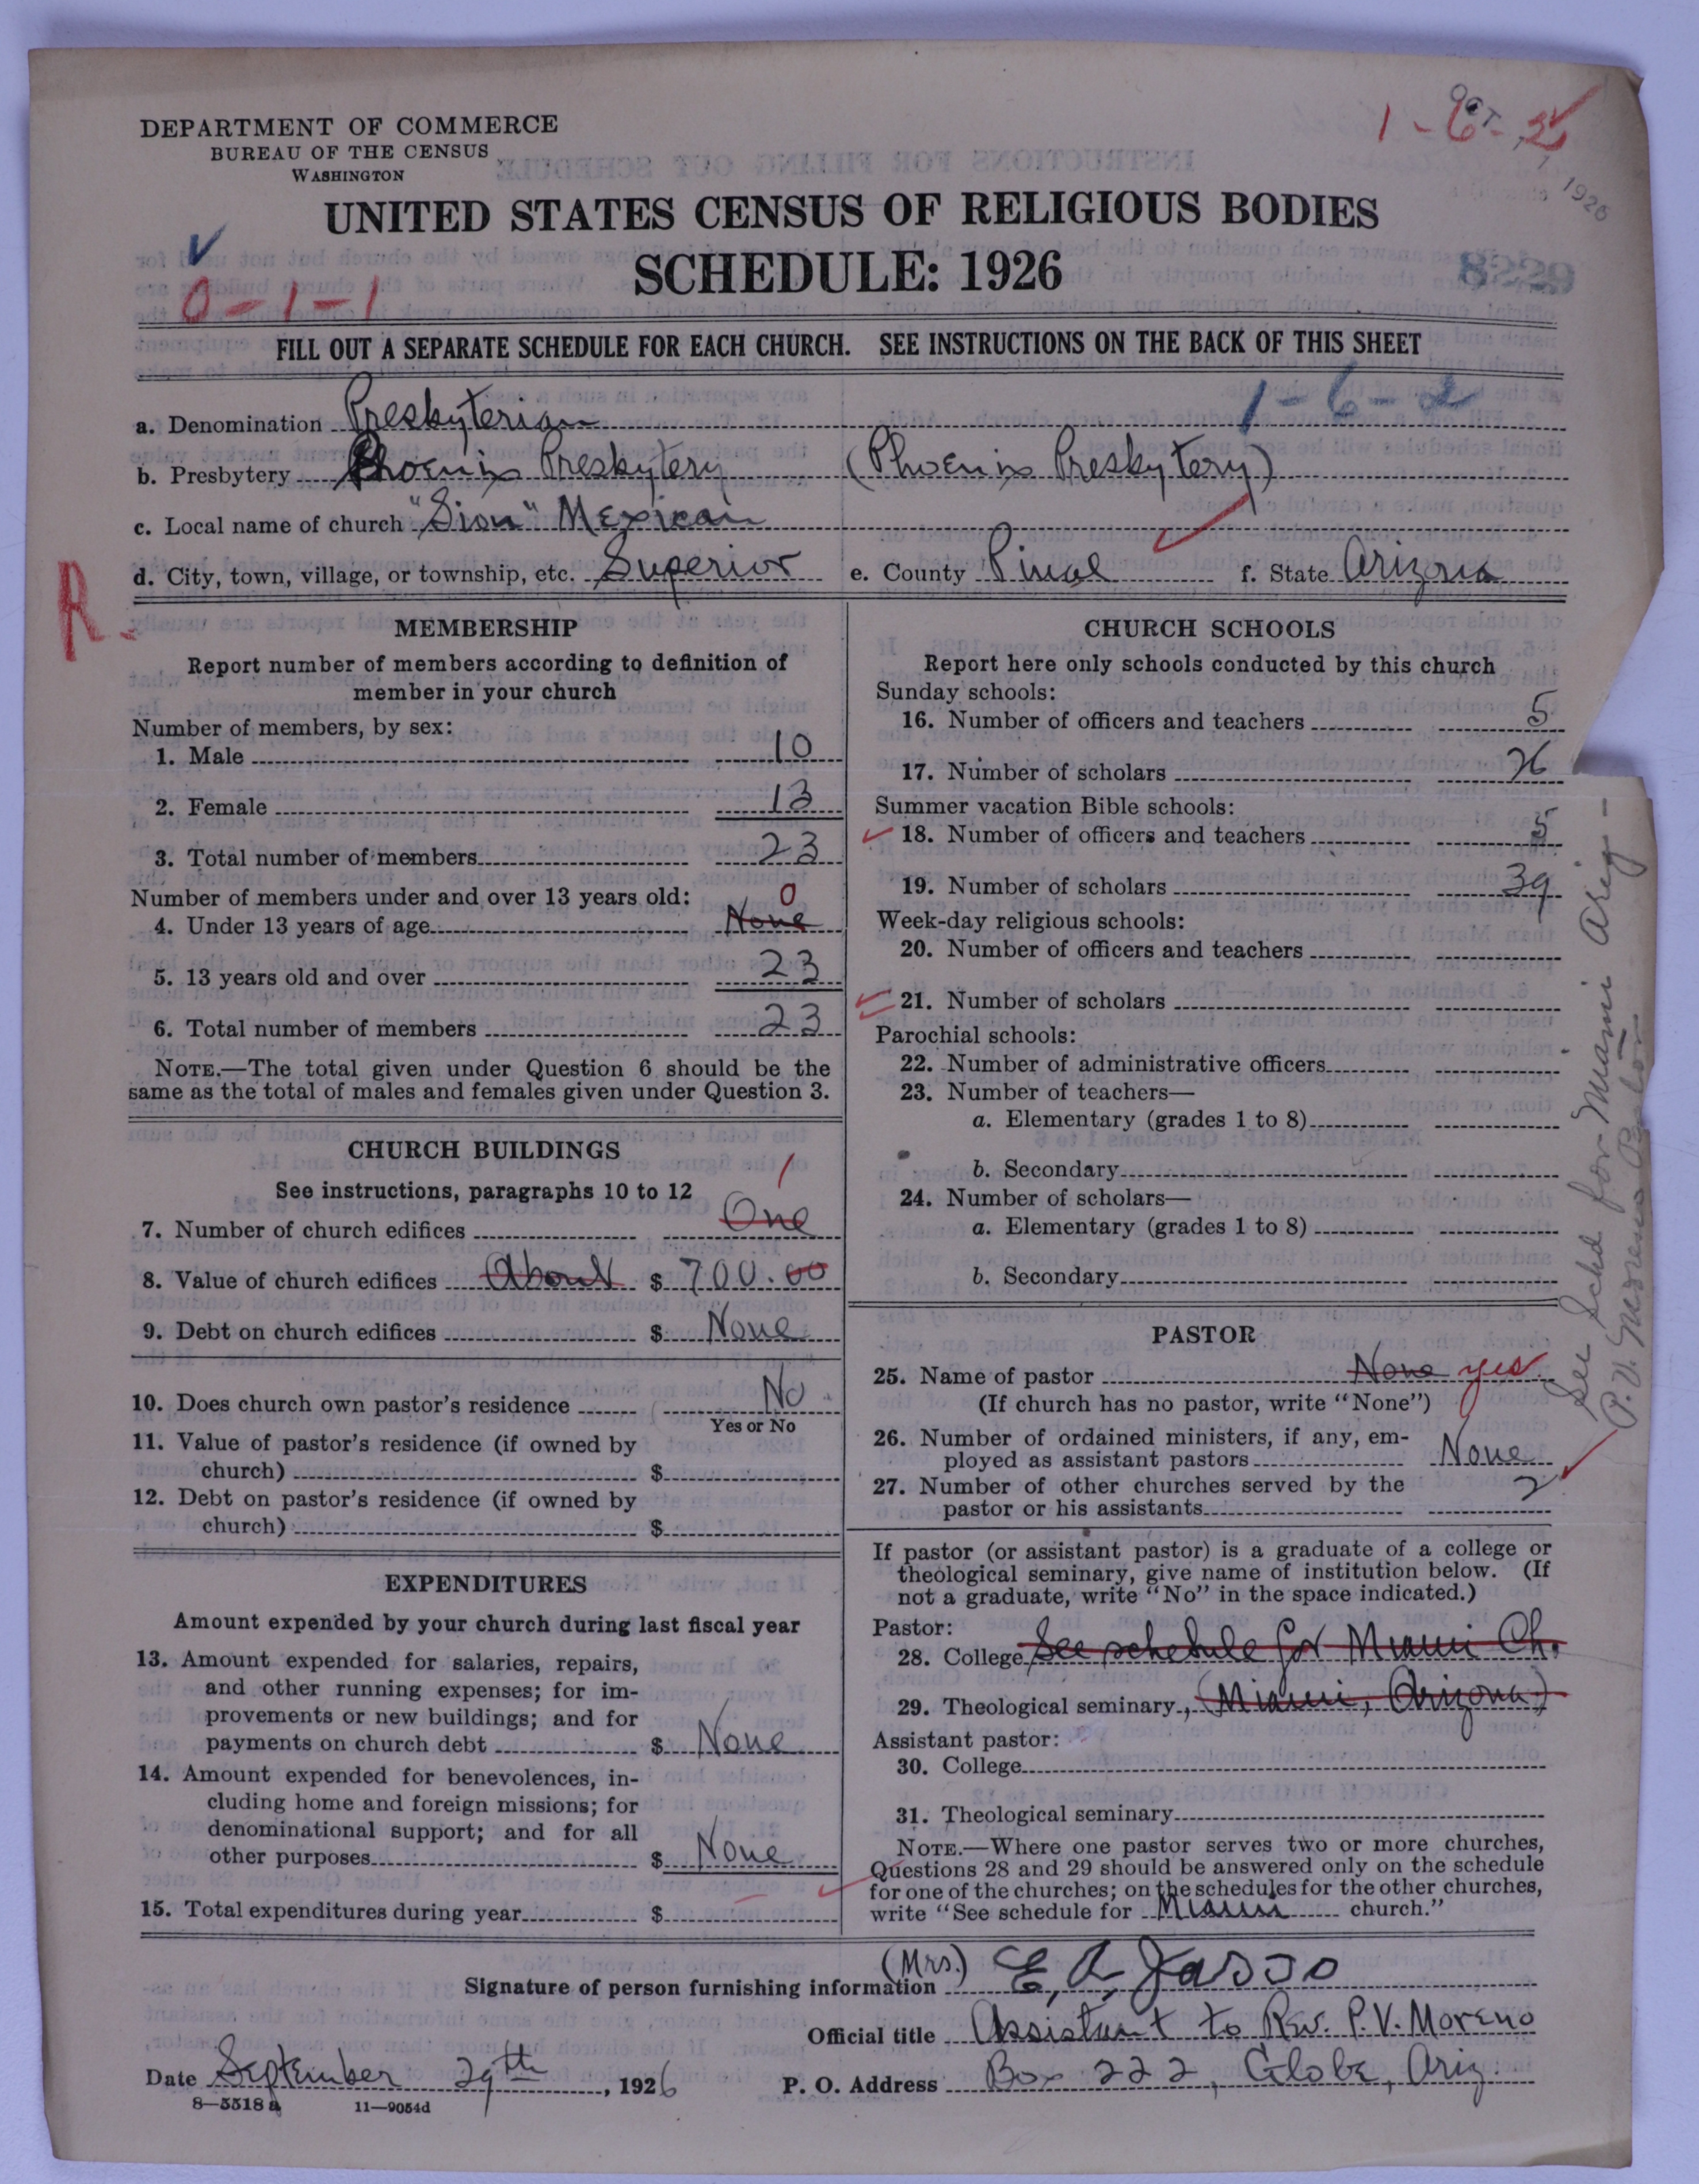 DEPARTMENT OF COMMERCE
BUREAU OF THE CENSUS
WASHINGTON
1-6-2
OCT 1926
UNITED STATES CENSUS OF RELIGIOUS BODIES
SCHEDULE: 1926
8229
0-1-1
FILL OUT A SEPARATE SCHEDULE FOR EACH CHURCH. SEE INSTRUCTIONS ON THE BACK OF THIS SHEET
1-6-2
a. Denomination Presbyterian
b. Presbytery Phoenix Presbytery (Phoenix Presbytery)
c. Local name of church "Sion" Mexican
d. City, town, village, or township, etc. Superior e. County Pinal f. State Arizona
R.
MEMBERSHIP
Report number of members according to definition of
member in your church
Number of members, by sex:
1. Male 10
2. Female 13
3. Total number of members 23
Number of members under and over 13 years old: 0
4. Under 13 years of age None
5. 13 years old and over 23
6. Total number of members 23
NOTE.—The total given under Question 6 should be the
same as the total of males and females given under Question 3.
CHURCH BUILDINGS
See instructions, paragraphs 10 to 12 1
7. Number of church edifices One
8. Value of church edifices About $ 700.00
9. Debt on church edifices $ None
10. Does church own pastor's residence No
Yes or No
11. Value of pastor's residence (if owned by
church) $
12. Debt on pastor's residence (if owned by
church) $
EXPENDITURES
Amount expended by your church during last fiscal year
13. Amount expended for salaries, repairs,
and other running expenses; for im-
provements or new buildings; and for
payments on church debt $ None
14. Amount expended for benevolences, in-
cluding home and foreign missions; for
denominational support; and for all
other purposes $ None
15. Total expenditures during year $
CHURCH SCHOOLS
Report here only schools conducted by this church
Sunday schools:
16. Number of officers and teachers 5
17. Number of scholars 26
Summer vacation Bible schools:
18. Number of officers and teachers 5
19. Number of scholars 39
Week-day religious schools:
20. Number of officers and teachers
21. Number of scholars
Parochial schools:
22. Number of administrative officers
23. Number of teachers—
a. Elementary (grades 1 to 8)
b. Secondary
24. Number of scholars—
a. Elementary (grades 1 to 8)
b. Secondary
PASTOR
25. Name of pastor None yes
(If church has no pastor, write "None")
26. Number of ordained ministers, if any, em-
ployed as assistant pastors None
27. Number of other churches served by the
pastor or his assistants 2
If pastor (or assistant pastor) is a graduate of a college or
theological seminary, give name of institution below. (If
not a graduate, write "No" in the space indicated.)
Pastor:
28. College See schedule for Miami Ch.
29. Theological seminary, (Miami, Arizona)
Assistant pastor:
30. College
31. Theological seminary
NOTE.—Where one pastor serves two or more churches,
Questions 28 and 29 should be answered only on the schedule
for one of the churches; on the schedules for the other churches,
write "See schedule for Miami church."
See Sched for Miami Ariz—
P. V. Moreno Pastor
Signature of person furnishing information (Mrs.) E. A. Jasso
Official title Assistant to Rev. P. V. Moreno
Date September 29th, 1926 P. O. Address Box 222, Globe, Ariz.
8—5518 a 11—9054d